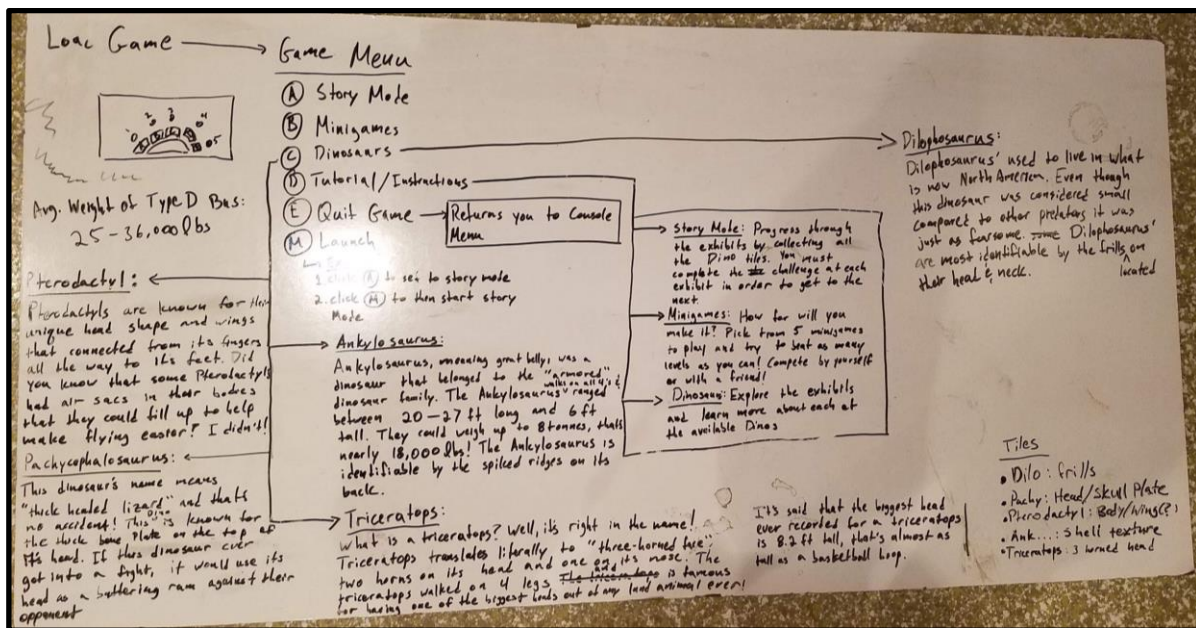 Load Game
Game Menu
A Story Mode
B Minigames
C Dinosaurs
D Tutorial/Instructions
E Quit Game
Returns you to Console
Menu
M Launch
1. click A to set to story mode
2. click M to then start story
Mode
0 2 3 4 05
Avg. Weight of Type D Bus:
25-36,000 lbs
Pterodactyl:
Pterodactyls are known for their
unique head shape and wings
that connected from its fingers
all the way to its feet. Did
you know that some Pterodactyls
had air sacs in their bodies
that they could fill up to help
make flying easier? I didn't!
Pachycephalosaurus:
This dinosaur's name means
"thick headed lizard" and thats
no accident! This Dino is known for
the thick bone plate on the top of
It's head. If this dinosaur ever
got into a fight, it would use its
head as a battering ram against their
opponent
Ankylosaurus:
Ankylosaurus, meaning great belly, was a
dinosaur that belonged to the "armored"
dinosaur family. The Ankylosaurus walks on all 4's & ranged
between 20-27 ft long and 6 ft
tall. They could weigh up to 8 tonnes, thats
nearly 18,000 lbs! The Ankylosaurus is
identifiable by the spiked ridges on its
back.
Triceratops:
What is a triceratops? Well, it's right in the name!
Triceratops translates literally, to "three-horned face"
two horns on its head and one on its nose. The
triceratops walked on 4 legs and is famous
for having one of the biggest heads out of any land animal ever!
It's said that the biggest head
ever recorded for a triceratops
is 8.2 ft tall, that's almost as
tall as a basketball hoop.
Story Mode: Progress through
the exhibits by collecting all
the Dino tiles. You must
complete the challenge at each
exhibit in order to get to the
next.
Minigames: How far will you
make it? Pick from 5 minigames
to play and try to beat as many
levels as you can! Compete by yourself
or with a friend!
Dinosaur: Explore the exhibits
and learn more about each of
the available Dinos
Dilophosaurus:
Dilophosaurus' used to live in what
is now North America. Even though
this dinosaur was considered small
compared to other predators it was
just as fearsome. Dilophosaurus'
are most identifiable by the frills located on
their head & neck.
Tiles
• Dilo: frills
• Pachy: Head/Skull Plate
• Pterodactyl: Body/Wing(?)
• Ank...: Shell texture
• Triceratops: 3 horned head